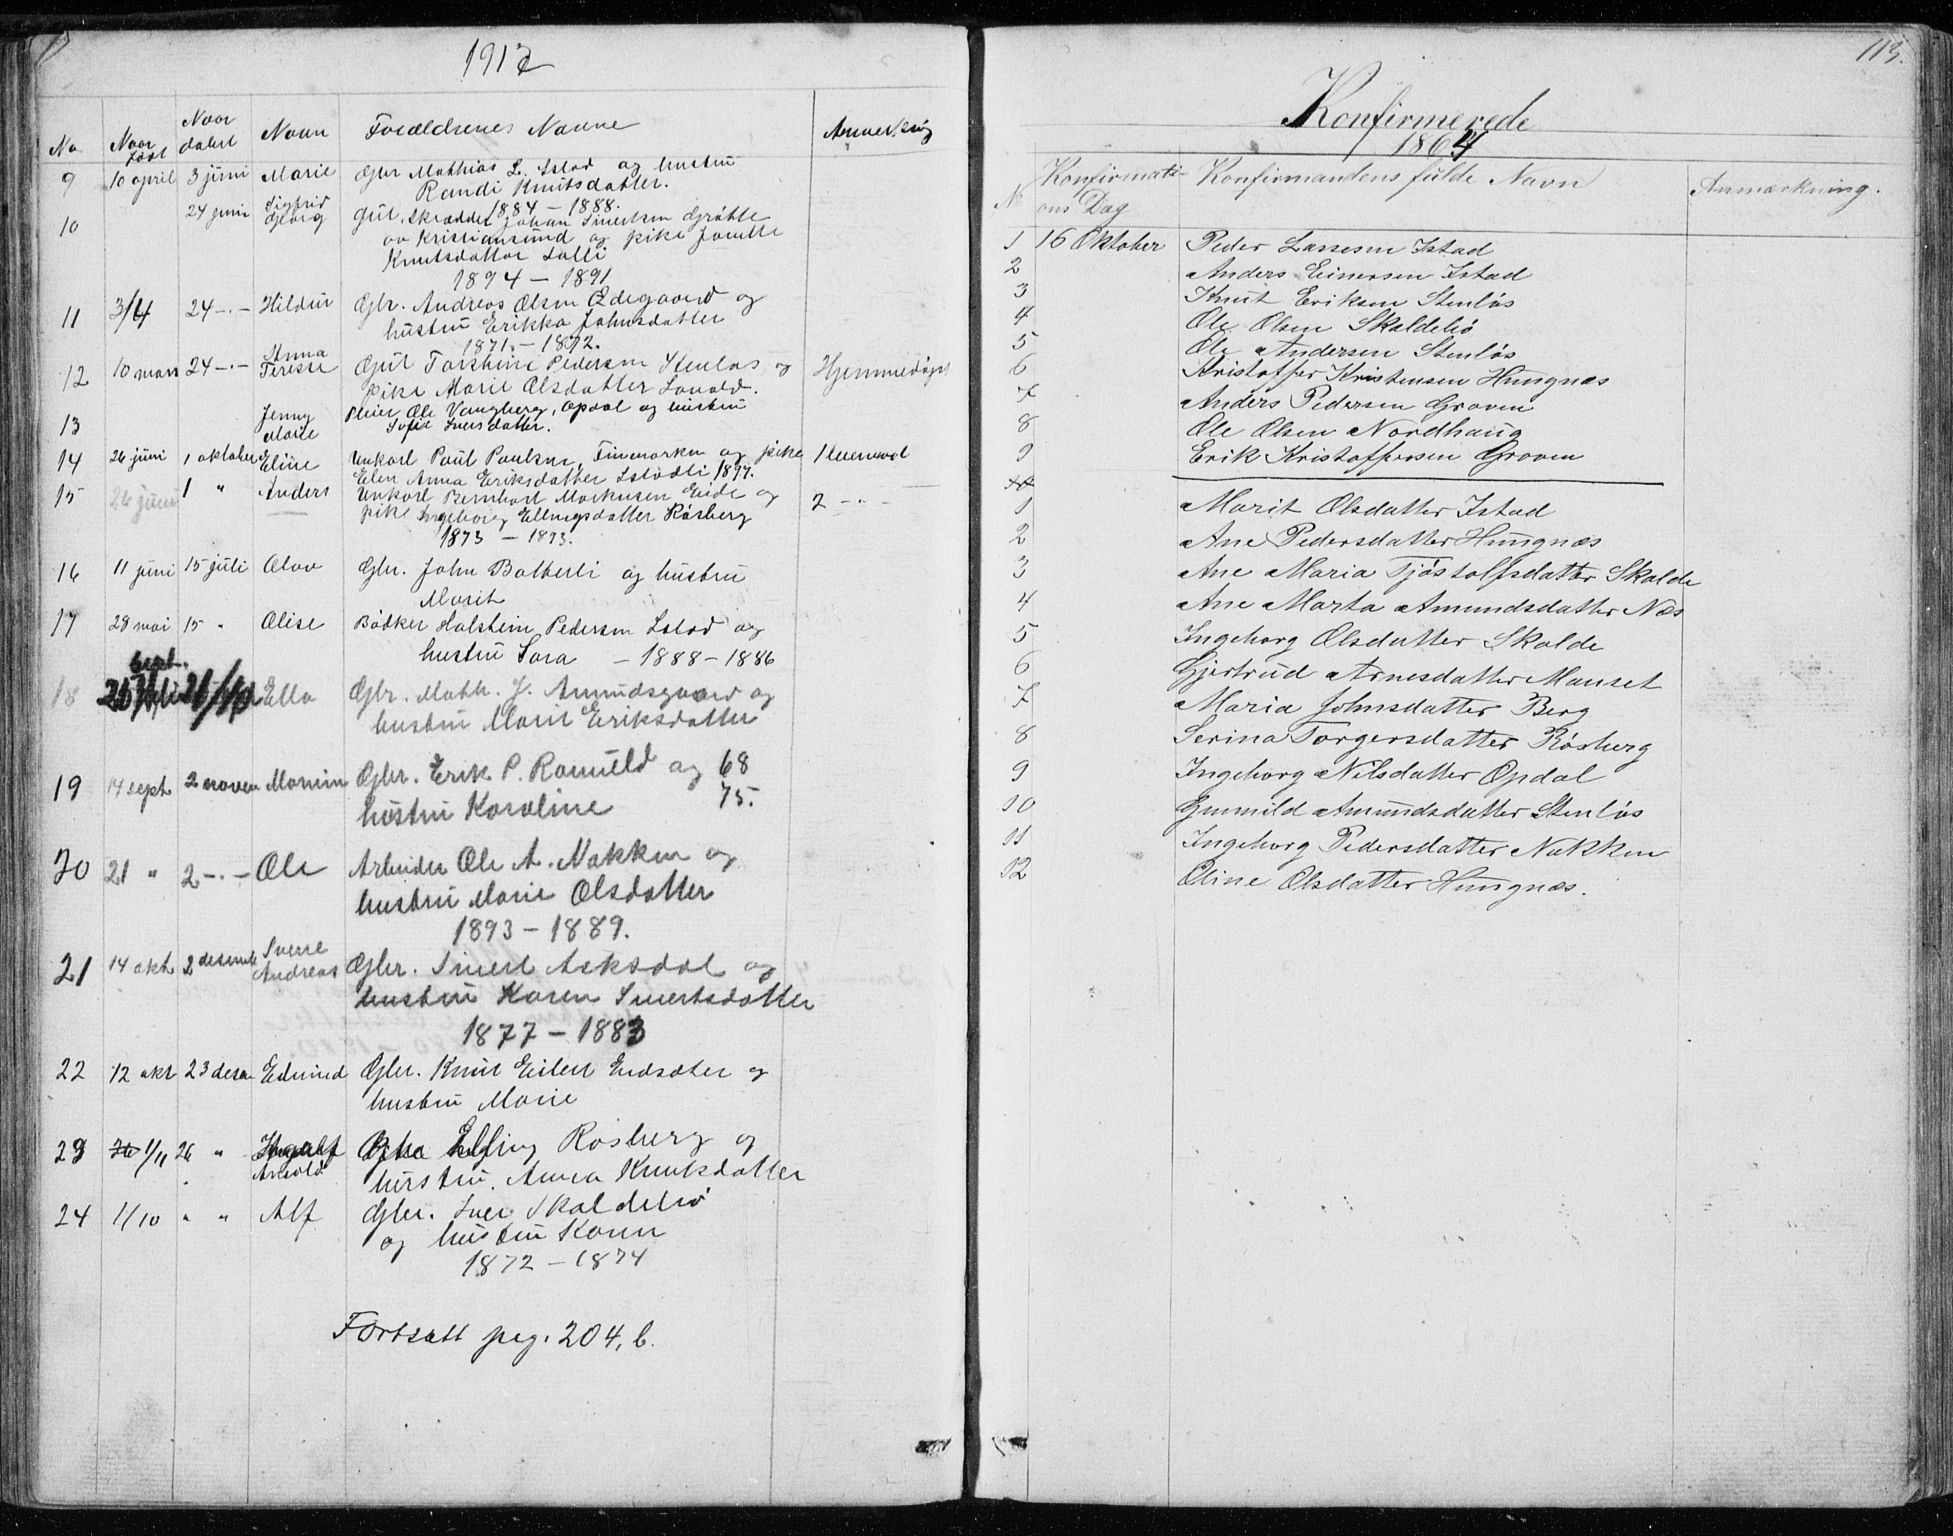 1917
No
Naar
født
Naar
døbt
Navn
Forældrenes Navne
Anmerkning
9 10 april 3 juni Marie Gbr Mathias L. Istad og hustru
Randi Knutsdatter.
1884 - 1888.
10 24 juni Sigfrid
Georg
Gut. Skrædder Johan Sivertsen
av Kristiansund og pike
Knutsdatter
1894 - 1891
11 3/4 24 - · - Hildur Gbr. Andreas Olsen Ødegaard og
hustru Erikka Johnsdatter
1871. - 1872.
12 10 mars 24 - · - Anna
Terese
Gut Torstein Pedersen Stenløs og
pike Marie Olsdatter
Hjemmedøpt
13 Jenny
Marie
Ole Vangberg, Opdal og hustru
Sofie Iversdatter.
14 26 juni 1 oktober Eline Unkarl Paul Paulsen, Finmarken og pike
Elen Anna Eriksdatter 1897.
15 26 juni 1 " Anders Unkarl Bernhart Markussen Eide og
pike Ingeborg Ellingsdatter Røsberg
2 - · -
1873 - 1893.
16 11 juni 15 juli Olav Gbr. John Bolberli og hustru
Marit
17 28 mai 15 " Olise Bødker Halstein Pedersen Istad og
hustru Sara - 1888 - 1886
sept.
18 Ella Gbr. Math. J. Amundsgaard og
hustru Marit Eriksdatter
19 14 sept 2 noven Gbr. Erik P. Romuld og 68
hustru Karoline 75.
20 21 " 2 - · - Ole Arbeider Ole A. Nakken og
hustru Marie Olsdatter
1893 - 1889.
21 14 okt 2 desemb Sverre
Andreas
Gbr. Sivert Aksdal og
hustru Karen Sivertsdatter
1877 - 1883
22 12 okt 23 desem Edmund Gbr. Knut Eilert Eidsæter og
hustru Marie
23 1/11 26 " Ingolf
Arnold
Elling Rosberg og
hustru. Anna Knutsdatter
24 1/10 " " Alf Gbr. Iver Skaldebø
og hustru Karen
1872 - 1874
Fortsatt pag. 204, b.
113.
Konfirmerede
1864
No
Konfirmati-
ons Dag
Konfirmandens fulde Navn
Anmærkning.
1 16 Oktober Peder Lassesen Istad
2 Anders Einersen Istad
3 Knut Eriksen Stenløs
4 Ole Olsen Skaldebø
5 Ole Andersen Stenløs
6 Kristoffer Kristensen Hungnæs
7 Anders Pedersen Groven
8 Ole Olsen Nordhaug
9 Erik Kristoffersen Groven
10
1 Marit Olsdatter Istad
2 Ane Pedersdatter Hungnæs
3 Ane Maria Tjøstolfsdatter Skalde
4 Ane Marta Amundsdatter Næs
5 Ingeborg Olsdatter Skalde
6 Gjertrud Arnesdatter Manset
7 Maria Johnsdatter Berg
8 Serina Torgersdatter Røsberg
9 Ingeborg Nilsdatter Opdal
10 Gunnild Amundsdatter Stenløs
11 Ingeborg Pedersdatter Nakken
12 Oline Olsdatter Hungnæs.